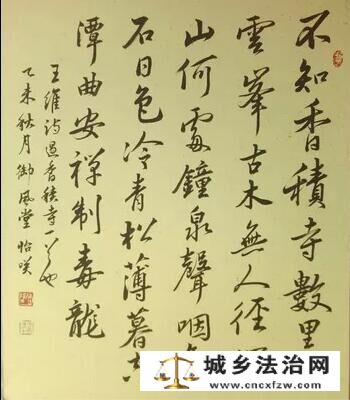 不知香積寺數里
雲峯古木無人徑深
山何處鐘泉聲咽
石日色冷青松薄暮
潭曲安禪制毒龍
王維詩過香積寺一首也
乙未秋月御風堂怡咲
城乡法治网
www.cncxfzw.com